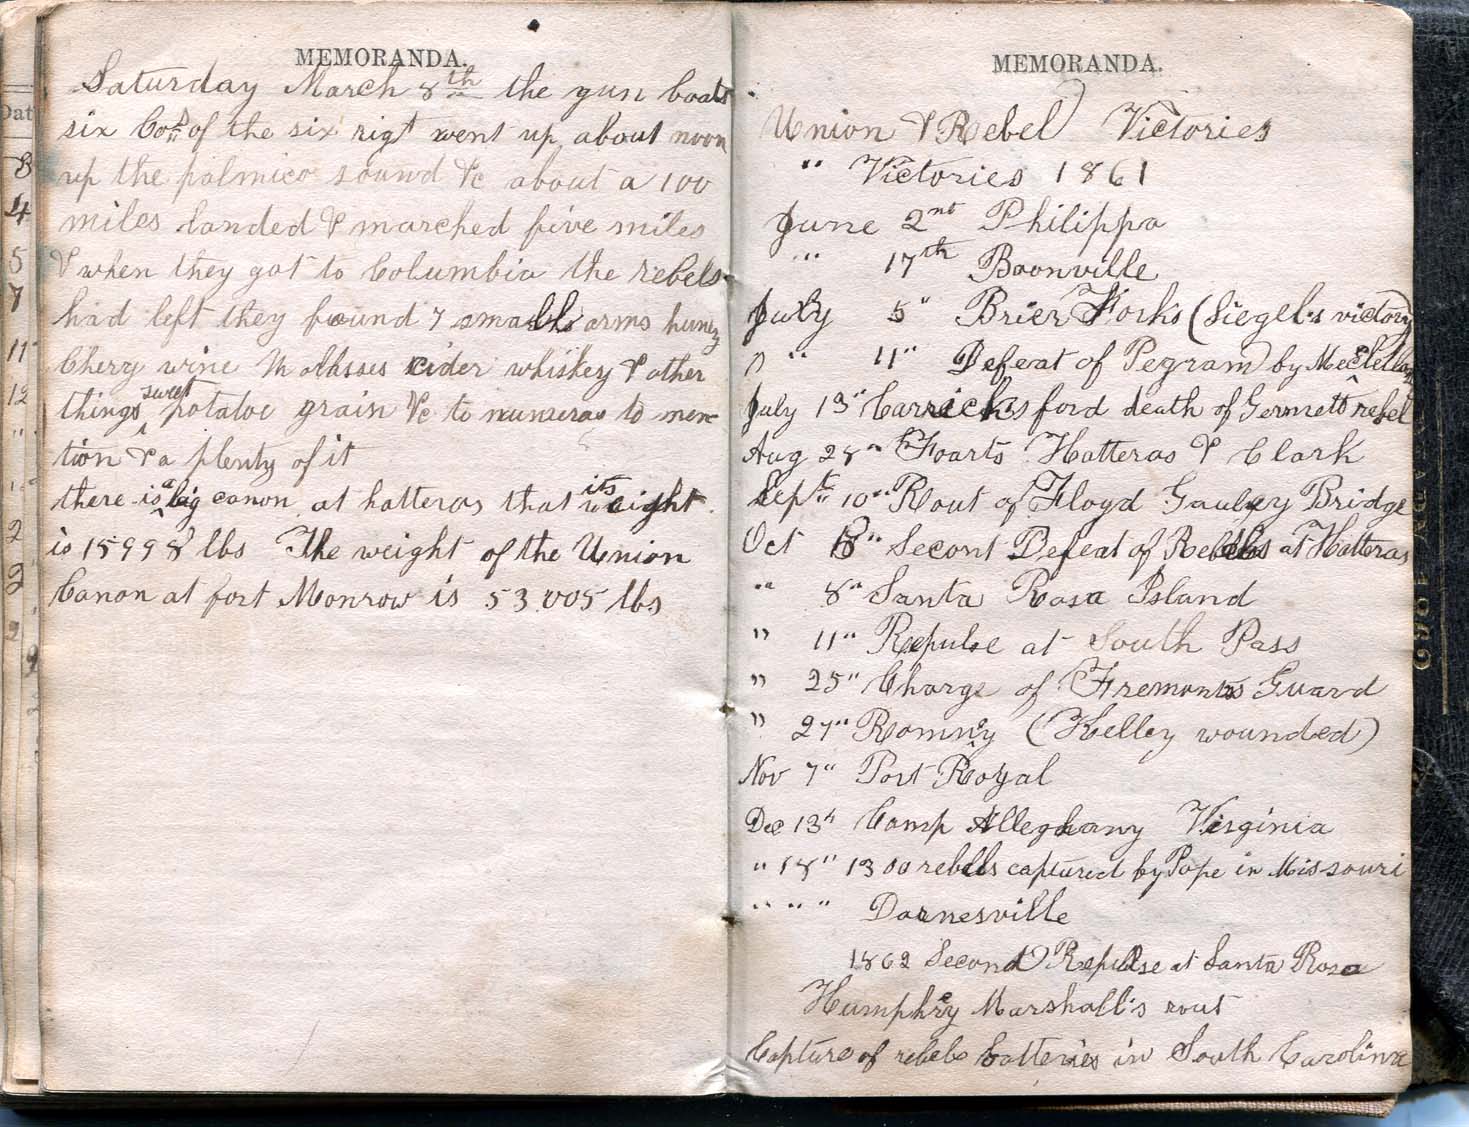 MEMORANDA.
Saturday March 8th the gun boats
six Cos of the six rigt went up about noon
up the palmico sound &c about a 100
miles landed & marched five miles
& when they got to Columbia the rebels
had left they found 7 smalls arms huney
Chery wine Mollasses cider whiskey & other
things sweet potatoe grain &c to numeras to men
tion & a plenty of it
there is a big canon at hatteras that its weight
is 15998 lbs The weight of the Union
Canon at fort Monrow is 53,005 lbs
Dat
8
4
5
7
11
12
"
2
2
2
9
MEMORANDA.
Union & Rebel Victories
" Victories 1861
June 2nt Philippa
" 17th Boonville
July 5" Brier Forks (Siegel's victory
" " 11" Defeat of Pegram by McClellan
July 13" Carricks ford death of Gernett rebel
Aug 28" Foarts Hatteras & Clark
Sept 10" Rout of Floyd Gauley Bridge
Oct 8" Secont Defeat of Rebells at Hatteras
" 8" Santa Rosa Island
" 11" Repulse at South Pass
" 25" Charge of Fremonts Guard
" 27" Romney (Kelley wounded)
Nov 7" Port Royal
Dec 13" Camp Alleghany Virginia
" 18" 1300 rebells captured by Pope in Missouri
" " " Darnesville
1862 Second Repulse at Santa Rosa
Humphrey Marshall's rout
Capture of rebels batteries in South Carolina